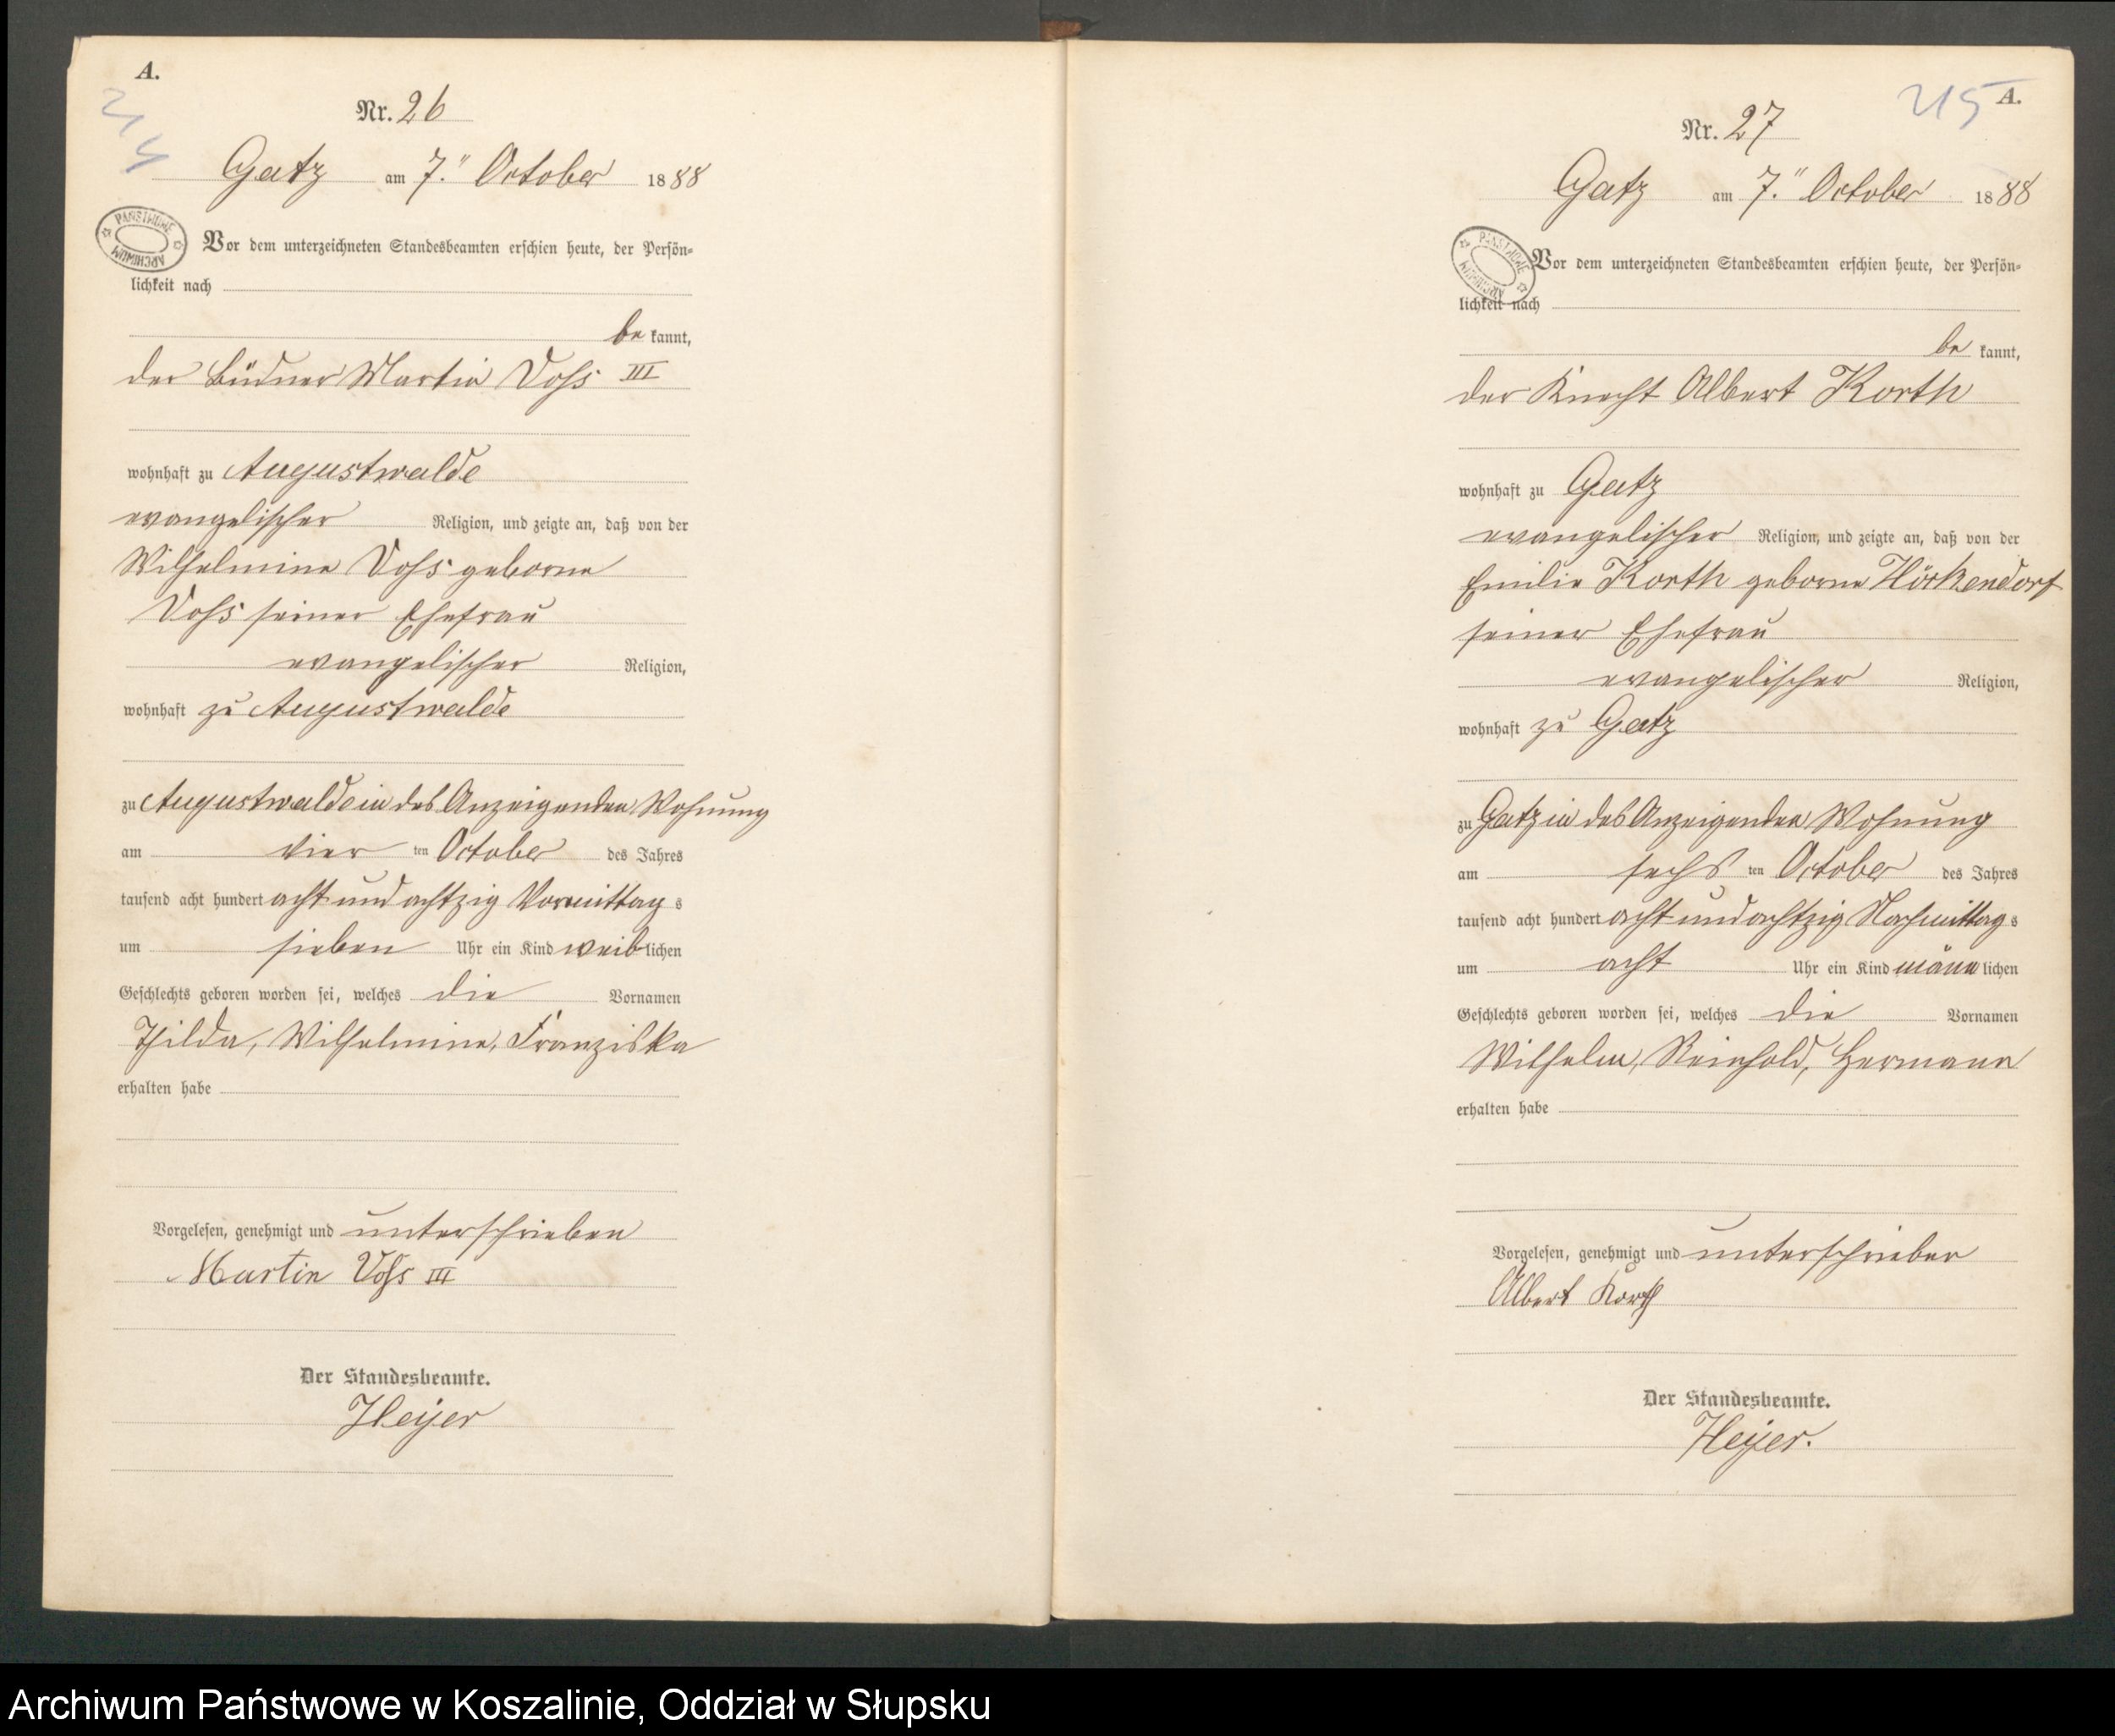 A.
214
Nr. 26
Gatz am 7.'' October 1888
PAŃSTWOWE ARCHIWUM
Vor dem unterzeichneten Standesbeamten erschien heute, der Persön-
lichkeit nach
be kannt,
der Büdner Martin Voss III
wohnhaft zu Augustwalde
evangelischer Religion, und zeigte an, daß von der
Wilhelmine Voss geborne
Voss seiner Ehefrau
evangelischer Religion,
wohnhaft zu Augustwalde
zu Augustwalde in des Anzeigenden Wohnung
am vier ten October des Jahres
tausend acht hundert acht und achtzig Vormittag s
um sieben Uhr ein Kind weib lichen
Geschlechts geboren worden sei, welches die Vornamen
Hilda, Wilhelmine, Franziska
erhalten habe
Vorgelesen, genehmigt und unterschrieben
Martin Voss III
Der Standesbeamte.
Heyer
215 A.
Nr. 27
Gatz am 7.'' October 1888
PAŃSTWOWE ARCHIWUM
Vor dem unterzeichneten Standesbeamten erschien heute, der Persön-
lichkeit nach
be kannt,
der Knecht Albert Korth
wohnhaft zu Gatz
evangelischer Religion, und zeigte an, daß von der
Emilie Korth geborne Hörkendorf
seiner Ehefrau
evangelischer Religion,
wohnhaft zu Gatz
zu Gatz in des Anzeigenden Wohnung
am sechs ten October des Jahres
tausend acht hundert acht und achtzig Nachmittag s
um acht Uhr ein Kind männ lichen
Geschlechts geboren worden sei, welches die Vornamen
Wilhelm, Reinhold, Hermann
erhalten habe
Vorgelesen, genehmigt und unterschrieben
Albert Korth
Der Standesbeamte.
Heyer.
Archiwum Państwowe w Koszalinie, Oddział w Słupsku